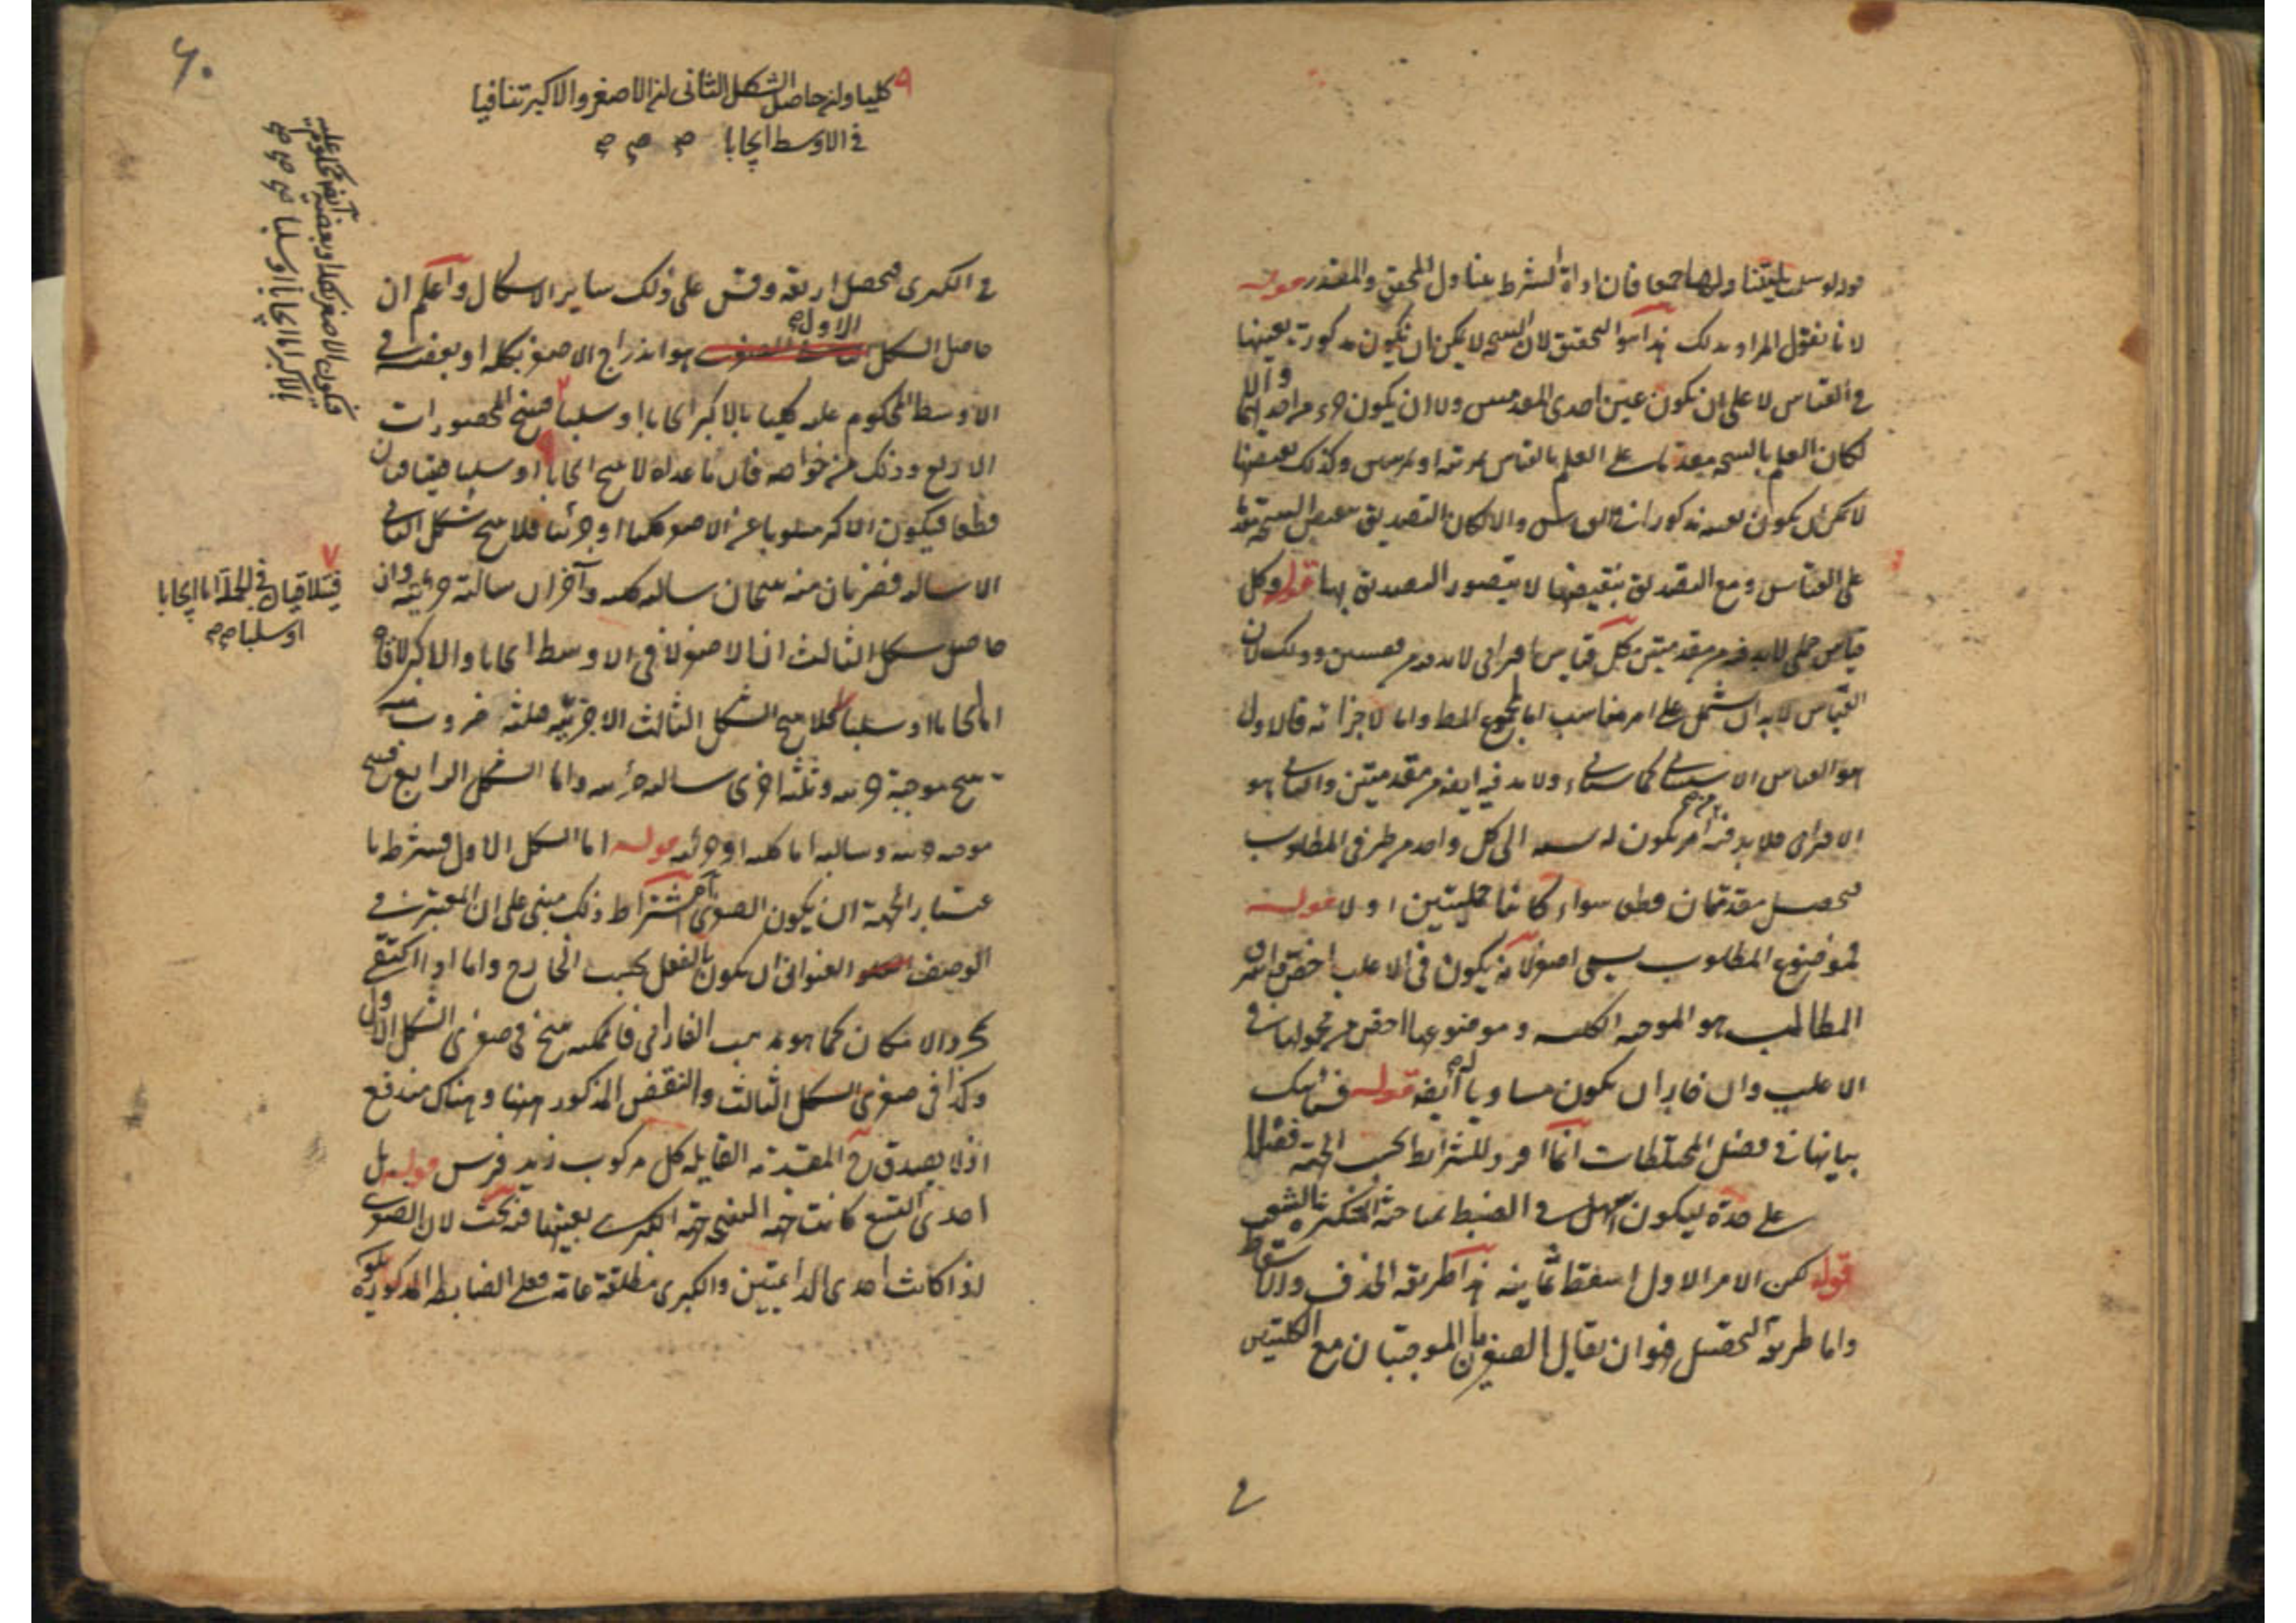 فان اداة الشرط يتناول المحقق والمقدر قوله
لانا نقول المراد بذلك هذا هو التحقيق لان النتيجة لا يمكن ان يكون مذكورة بعينها
في القياس لا على ان يكون عين احدى المقدمتين ولا ان يكون جزء من احديهما والا
لكان العلم بالنتيجة مقدما على العلم بالقياس بمرتبة او بمرتبتين وكذلك نقيضها
لا يمكن ان يكون بعينه مذكورا في القياس والا لكان التصديق بنقيض النتيجة مقدما
على القياس ومع التصديق بنقيضها لا يتصور التصديق بها قوله وكل
قياس حملي لا بد فيه من مقدمتين بل كل قياس اقتراني لا بد فيه من مقدمتين وذلك لان
القياس لا بد ان يشتمل على امر مناسب اما لمجموع المط واما لاجزائه فالاول
هو القياس الاستثنائي كما سيأتي ولا بد فيه ايضه من مقدمتين والثاني هو
الاقتراني فلا بد فيه من امر يكون له نسبة الى كل واحد من طرفي المطلوب
فيحصل مقدمتان قطعا سواء كانتا حمليتين او لا قوله
فموضوع المطلوب يسمى اصغر لانه يكون في الاغلب اخص اشرف
المطالب هو الموجبة الكلية وموضوعها اخص من محمولها في
الاغلب وان جاز ان يكون مساويا له ايضه قوله
بيانها في فصل المختلطات انما افرد للشرائط بحسب الجهة فصلا
على حدة ليكون اسهل في الضبط
قوله لكن الامر الاول اسقط ثمانية هذا طريقة الحذف والاسقاط
واما طريقة التحصيل فهو ان يقال الصغريان الموجبتان مع الكليتين
في
٦٠
كليا وان حاصل الشكل الثاني ان الاصغر والاكبر تنافيا
في الاوسط ايجابا صح صح صح
في الكبرى فيحصل اربعة وقس على ذلك ساير الاشكال واعلم ان
حاصل الشكل الاول صح هو اندراج الاصغر بكله او بعضه في
الاوسط المحكوم عليه كليا بالاكبر ايجابا او سلبا فينتج المحصورات
الاربع وذلك من خواصه فان ما عداه لا ينتج ايجابا او سلبا فيتنافيان
قطعا فيكون الاكبر مسلوبا عن الاصغر كليا او جزئيا فلا ينتج شكل الثاني
الا سالبة فضربان منه ينتجان سالبة كلية وآخران سالبة جزئية وان
حاصل شكل الثالث ان الاصغر لاقى الاوسط ايجابا والاكبر لاقاه
اما ايجابا او سلبا فلا ينتج الشكل الثالث الا جزئية فثلثة ضروب منه
ينتج موجبة جزئية وثلثة اخرى سالبة جزئية واما الشكل الرابع فينتج
موجبة جزئية وسالبة اما كلية او جزئية قوله اما الشكل الاول فشرطه با
عتبار الجهة ان يكون الصغرى اشتراط ذلك مبني على ان المعتبر في
الوصف العنواني ان يكون بالفعل بحسب الخارج واما اذا اكتفي
بمجرد الامكان كما هو مذهب الفارابي فالممكنة ينتج في صغرى الشكل الاول
وكذا في صغرى الشكل الثالث والنقض المذكور ههنا وهناك مندفع
اذ لا يصدق ح المقدمة القايلة كل مركوب زيد فرس قوله بل
احدى التسع كانت جهة النتيجة جهة الكبرى بعينها فيه بحث لان الصغرى
اذا كانت احدى الدائمتين والكبرى مطلقة عامة فعلى الضابط المذكورة
فيكون الاصغر بكله او بعضه ايضه محكوم عليه
بالاكبر اما ايجابا او سلبا صح صح صح
٧
فيتلاقيان في الجملة اما ايجابا
او سلبا صح